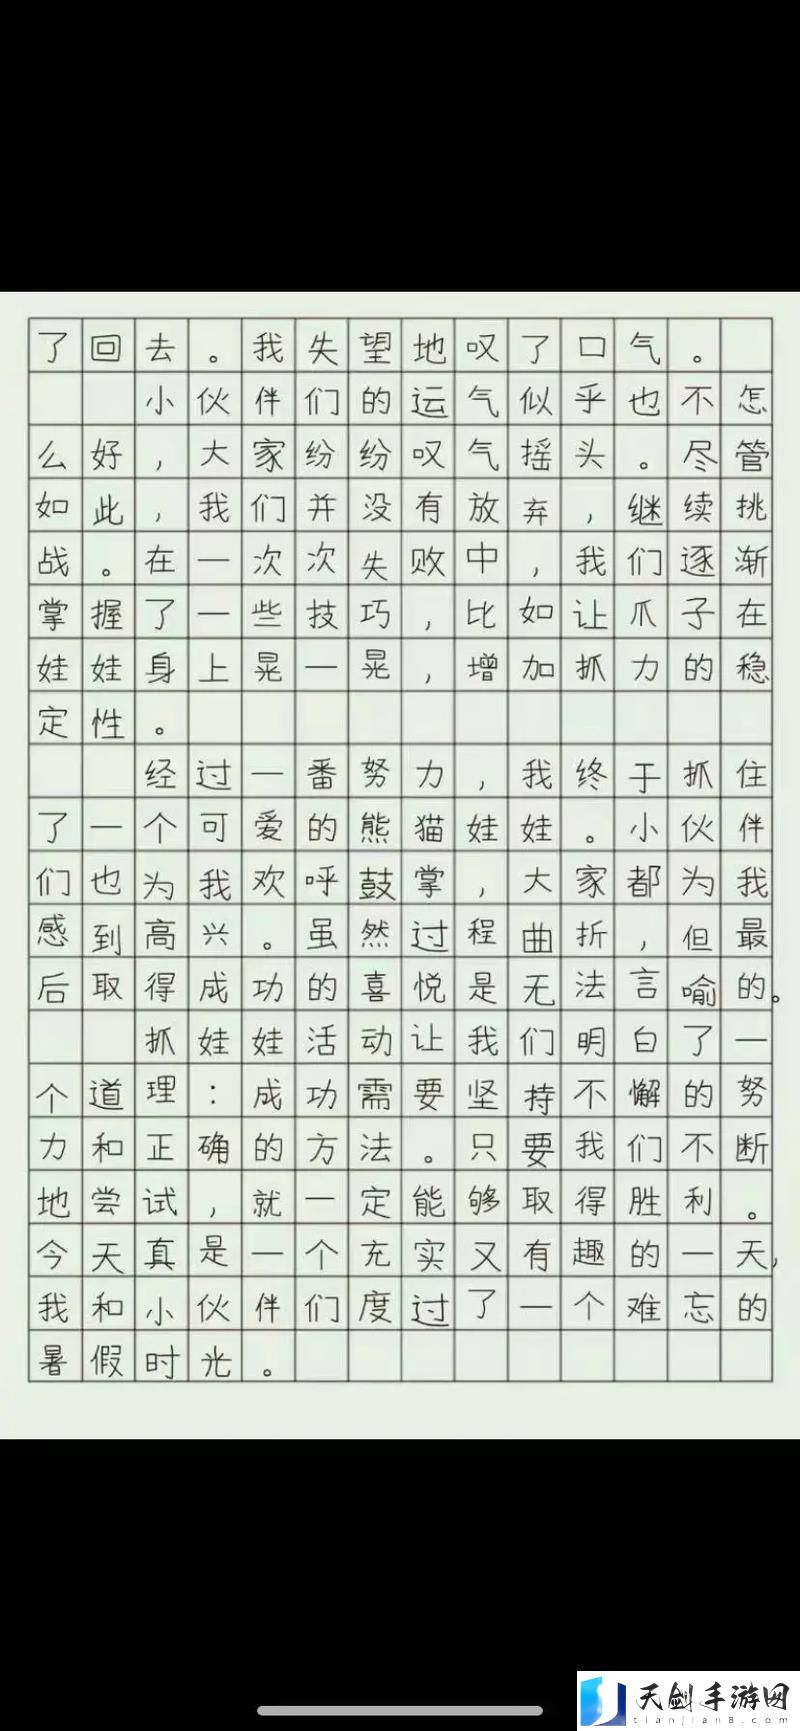 了回去。我失望地叹了口气。
小伙伴们的运气似乎也不怎
么好，大家纷纷叹气摇头。尽管
如此，我们并没有放弃，继续挑
战。在一次次失败中，我们逐渐
掌握了一些技巧，比如让爪子在
娃娃身上晃一晃，增加抓力的稳
定性。
经过一番努力，我终于抓住
了一个可爱的熊猫娃娃。小伙伴
们也为我欢呼鼓掌，大家都为我
感到高兴。虽然过程曲折，但最
后取得成功的喜悦是无法言喻的。
抓娃娃活动让我们明白了一
个道理：成功需要坚持不懈的努
力和正确的方法。只要我们不断
地尝试，就一定能够取得胜利。
今天真是一个充实又有趣的一天，
我和小伙伴们度过了一个难忘的
暑假时光。
天剑手游网
tianjian8.com